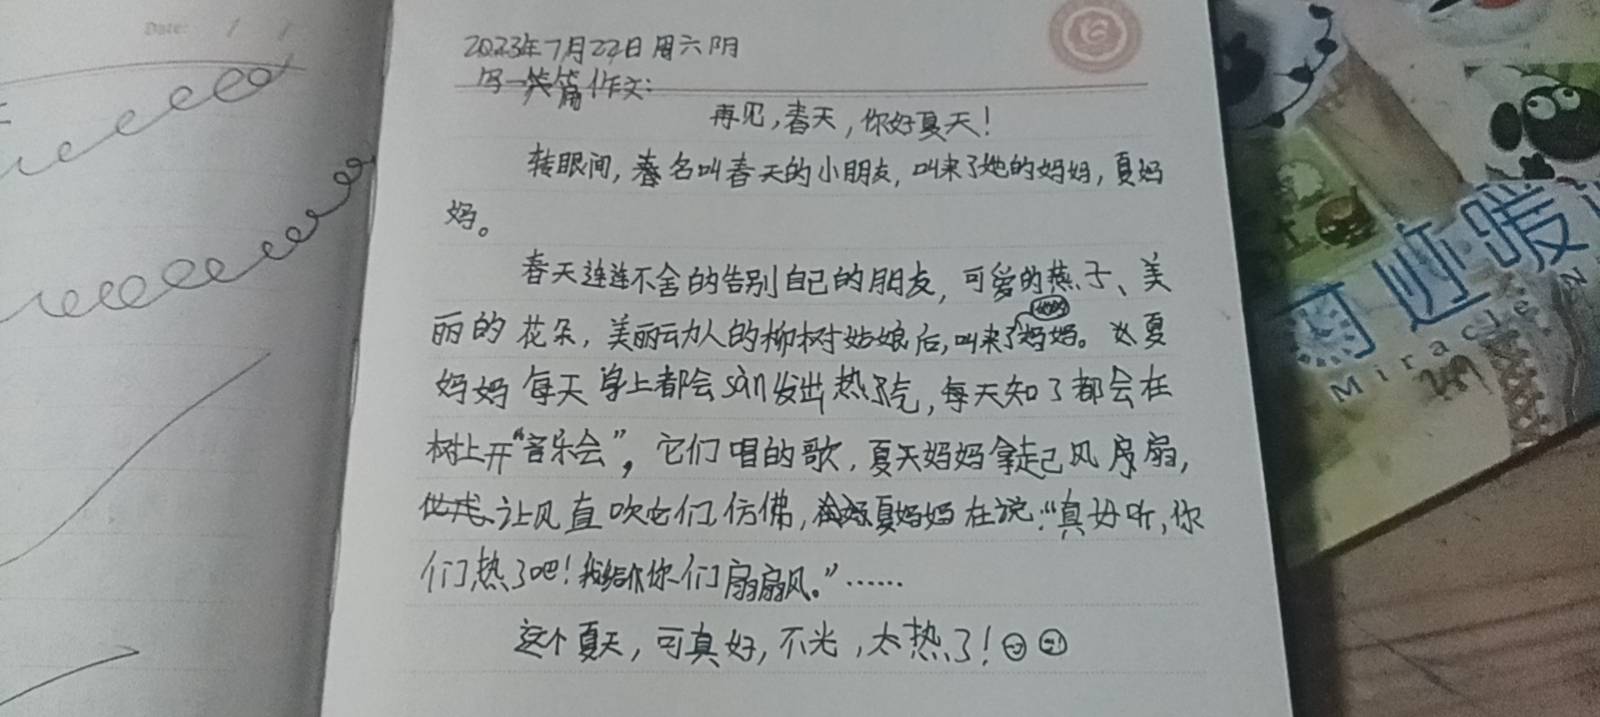 Date:
2023年7月22日 周六 阴
写一篇作文:
再见,春天,你好夏天!
转眼间,春名叫春天的小朋友,叫来了她的妈妈,夏妈
妈。
春天连连不舍的告别自己的朋友,可爱的燕子、美
丽的花朵,美丽动人的柳树姑娘后,叫来了妈妈。夏
妈妈每天身上都会sàn发出热气,每天知了都会在
树上开“音乐会”,它们唱的歌,夏天妈妈拿起风扇,
让风直吹它们仿佛,夏妈妈在说:“真好听,你
们热了吧!我给你们扇扇风。”……
这个夏天,可真好,不光,太热了!
可近暖
Miracle